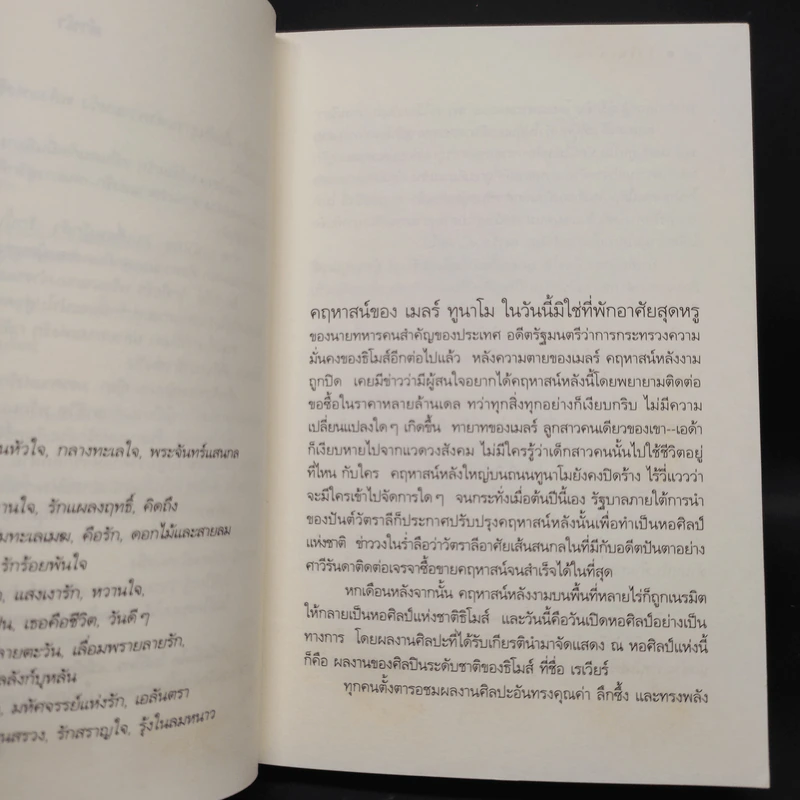 นหัวใจ, กลางทะเลใจ, พระจันทร์แสนกล
านใจ, รักแผลงฤทธิ์, คิดถึง
มทะเลเมฆ, คือรัก, ดอกไม้และสายลม
รักร้อยพันใจ
, แสงเงารัก, หวานใจ,
น, เธอคือชีวิต, วันดีๆ
ลายตะวัน, เลื่อมพรายลายรัก,
ลลังก์บุหลัน
, มหัศจรรย์แห่งรัก, เอลันตรา
นสรวง, รักสราญใจ, รุ้งในลมหนาว
คฤหาสน์ของ เมลร์ ทูนาโม ในวันนี้มิใช่ที่พักอาศัยสุดหรู
ของนายทหารคนสำคัญของประเทศ อดีตรัฐมนตรีว่าการกระทรวงความ
มั่นคงของธิโมส์อีกต่อไปแล้ว หลังความตายของเมลร์ คฤหาสน์หลังงาม
ถูกปิด เคยมีข่าวว่ามีผู้สนใจอยากได้คฤหาสน์หลังนี้โดยพยายามติดต่อ
ขอซื้อในราคาหลายล้านเดล ทว่าทุกสิ่งทุกอย่างก็เงียบกริบ ไม่มีความ
เปลี่ยนแปลงใดๆ เกิดขึ้น ทายาทของเมลร์ ลูกสาวคนเดียวของเขา--เอด้า
ก็เงียบหายไปจากแวดวงสังคม ไม่มีใครรู้ว่าเด็กสาวคนนั้นไปใช้ชีวิตอยู่
ที่ไหน กับใคร คฤหาสน์หลังใหญ่บนถนนทูนาโมยังคงปิดร้าง ไร้วี่แววว่า
จะมีใครเข้าไปจัดการใดๆ จนกระทั่งเมื่อต้นปีนี้เอง รัฐบาลภายใต้การนำ
ของปันต์วัตราลีก็ประกาศปรับปรุงคฤหาสน์หลังนั้นเพื่อทำเป็นหอศิลป์
แห่งชาติ ข่าววงในร่ำลือว่าวัตราลีอาศัยเส้นสนกลในที่มีกับอดีตปันตาอย่าง
ศาวีรันดาติดต่อเจรจาซื้อขายคฤหาสน์จนสำเร็จได้ในที่สุด
หกเดือนหลังจากนั้น คฤหาสน์หลังงามบนพื้นที่หลายไร่ก็ถูกเนรมิต
ให้กลายเป็นหอศิลป์แห่งชาติธิโมส์ และวันนี้คือวันเปิดหอศิลป์อย่างเป็น
ทางการ โดยผลงานศิลปะที่ได้รับเกียรตินำมาจัดแสดง ณ หอศิลป์แห่งนี้
ก็คือ ผลงานของศิลปินระดับชาติของธิโมส์ ที่ชื่อ เรเวียร์
ทุกคนตั้งตารอชมผลงานศิลปะอันทรงคุณค่า ลึกซึ้ง และทรงพลัง